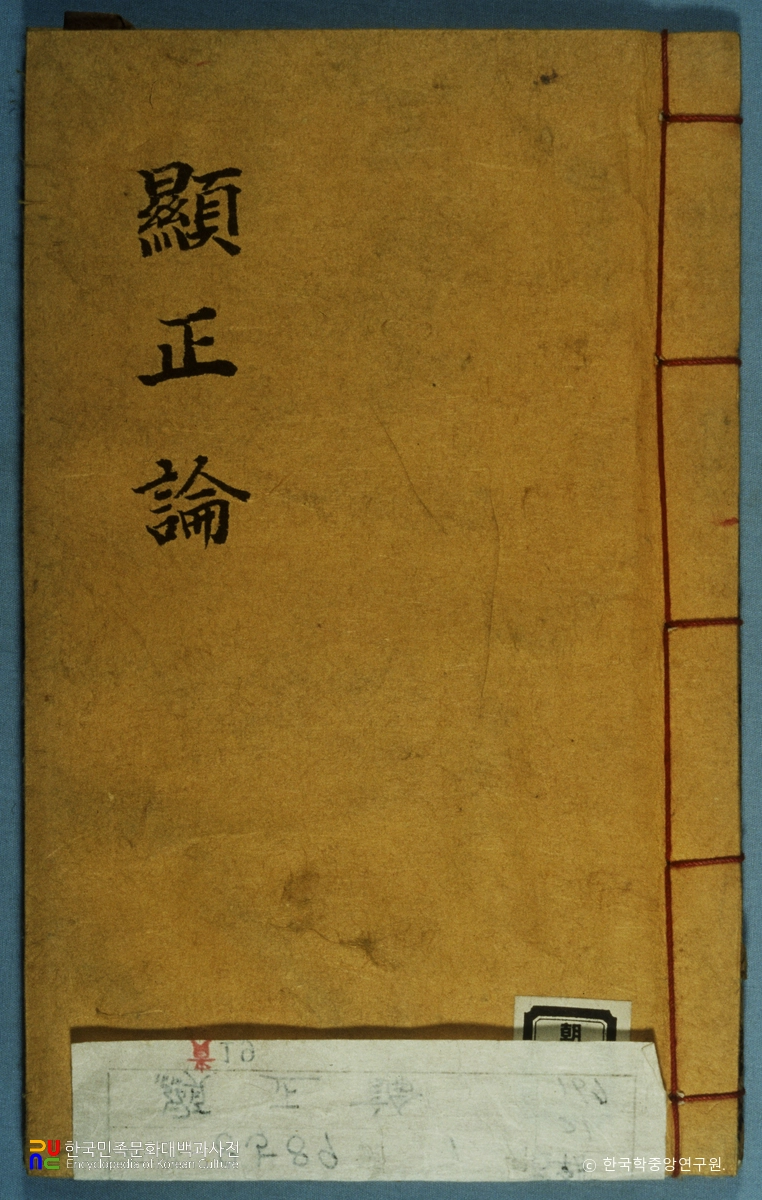 顯正論
朝
貴
한국민족문화대백과사전
Encyclopedia of Korean Culture
© 한국학중앙연구원